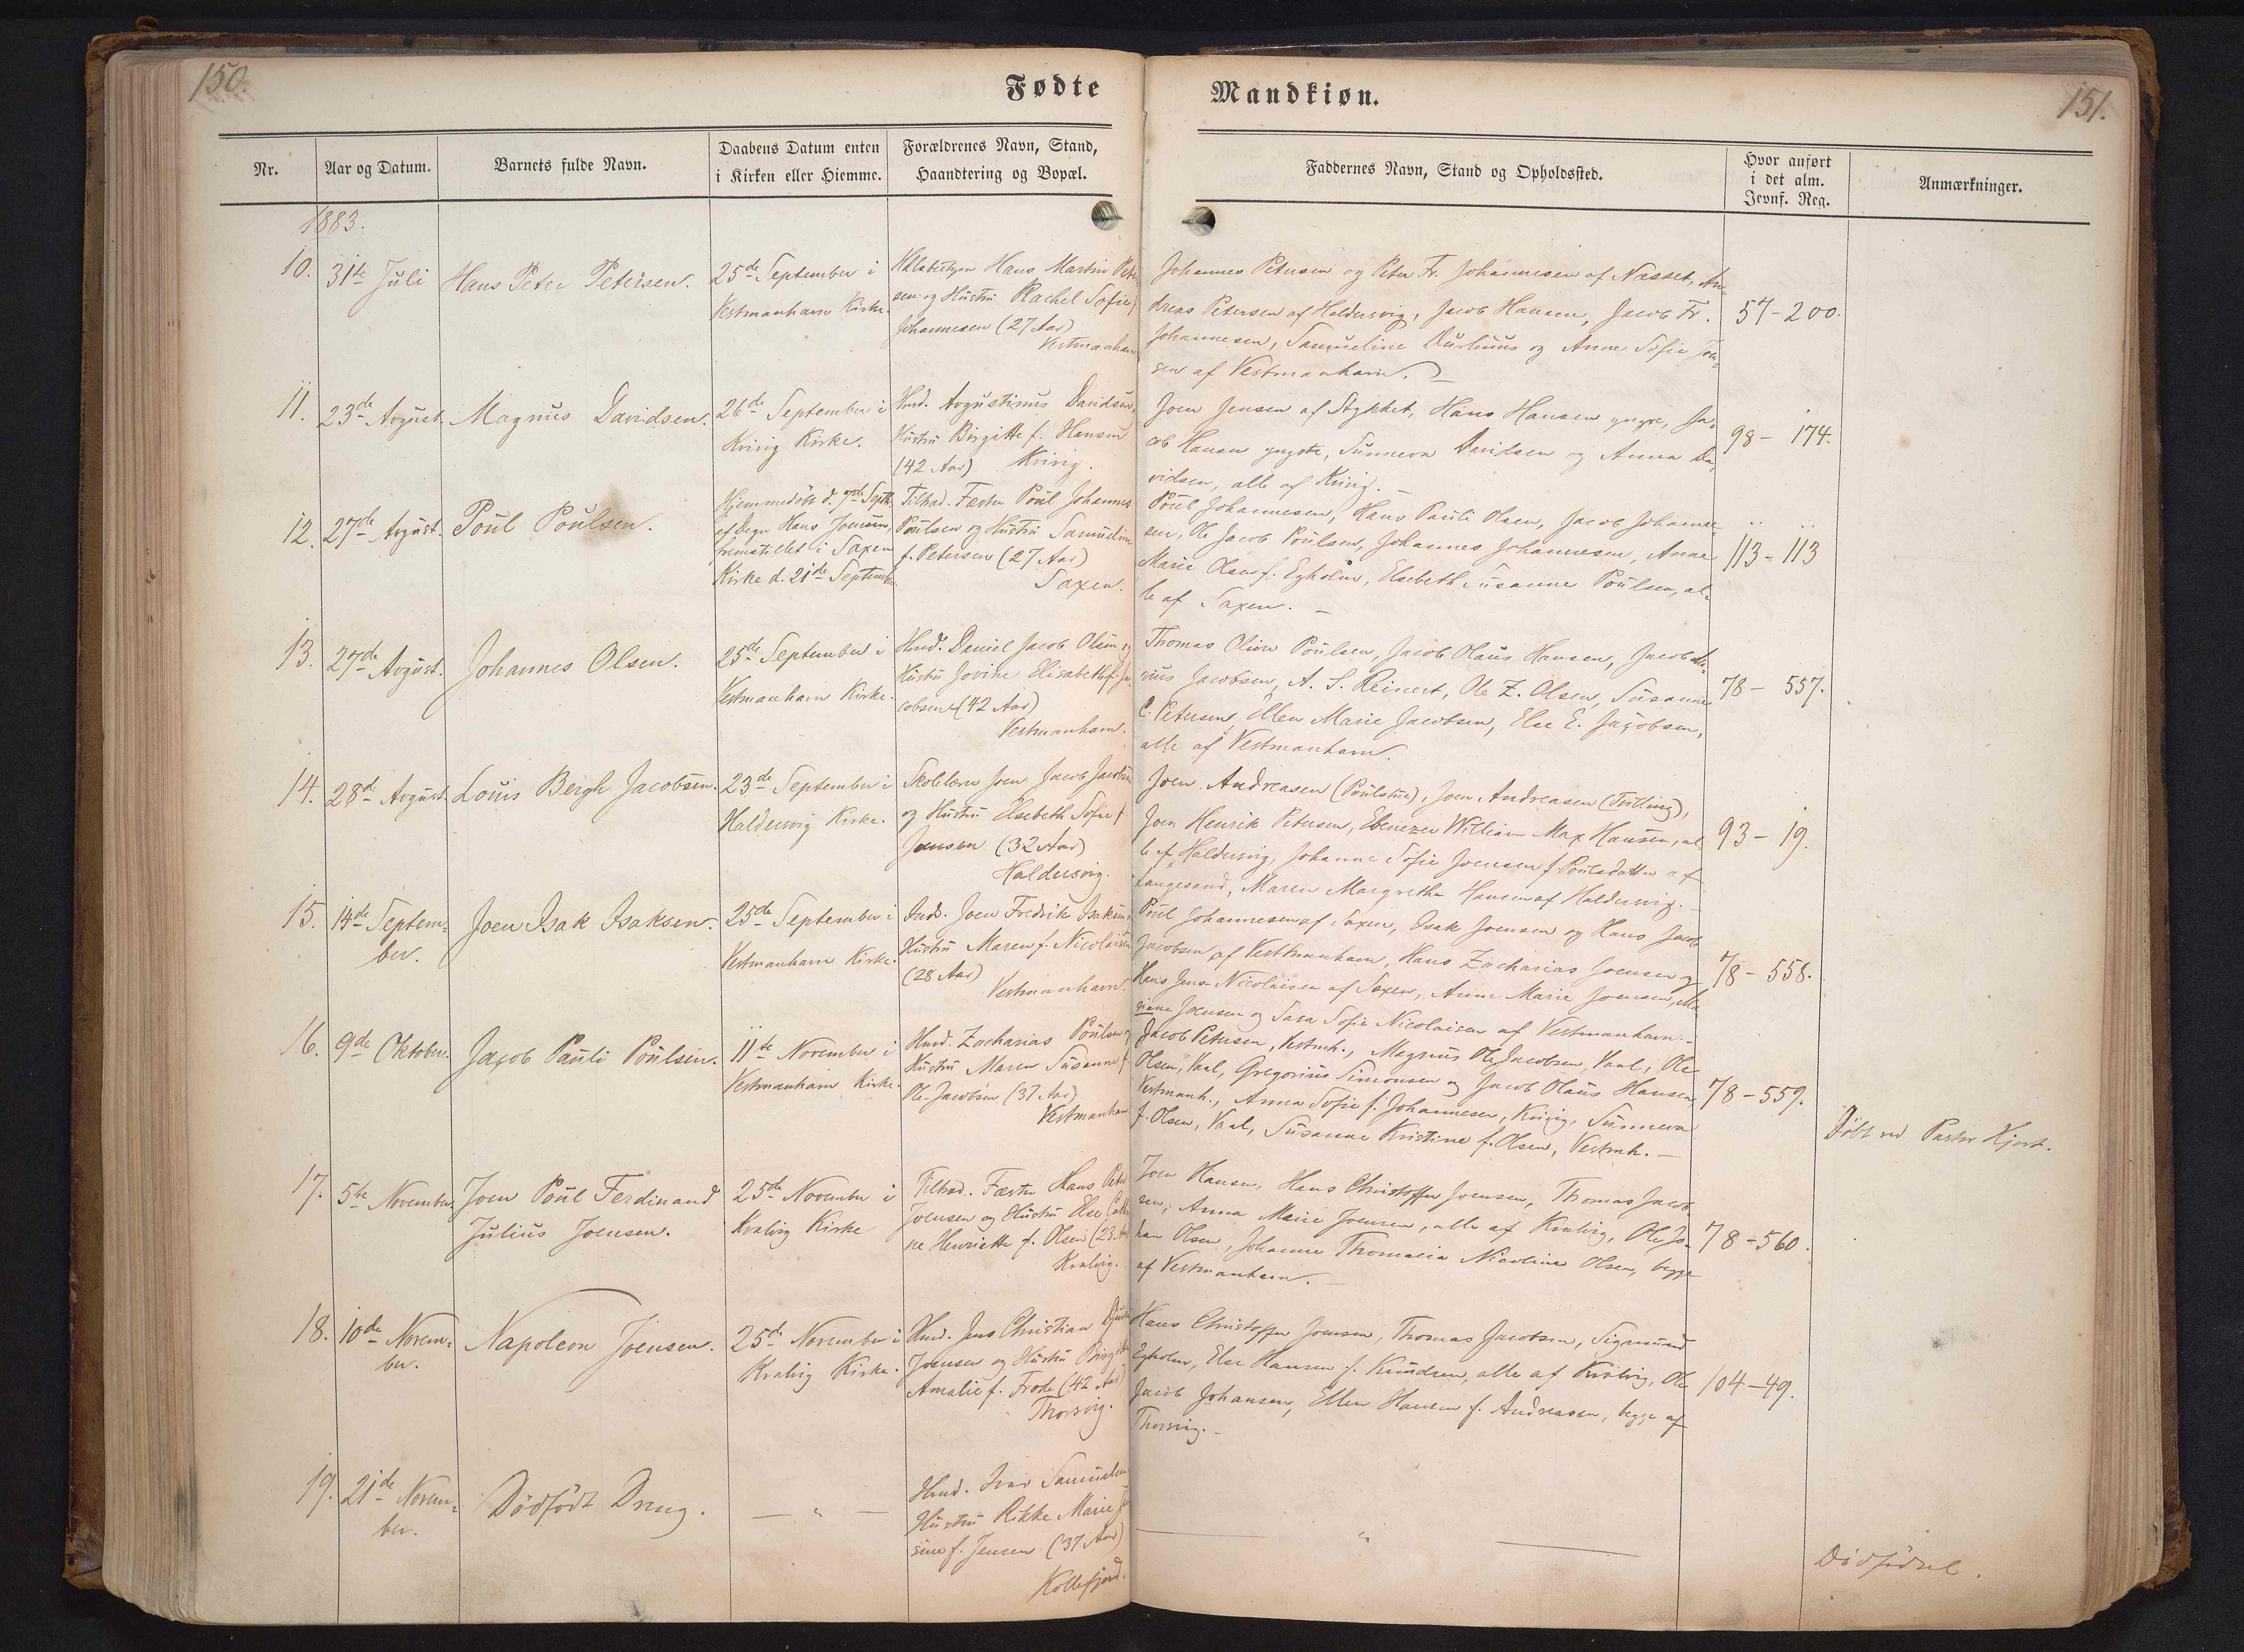 150.
Fødte
Nr.
Aar og Datum.
Barnets fulde Navn.
Daabens Datum enten
i Kirken eller Hiemme.
Forældrenes Navn, Stand,
Haandtering og Bopæl.
1883.
10.
31te Juli
Hans Peter Petersen.
25de September i
Vestmanhavn Kirke.
Hans Martin Peter-
sen og Hustru Rachel Sofie f.
Johannesen (27 Aar)
Vestmanhavn
11.
23de Avgust.
Magnus Davidsen.
26de September i
Kvivig Kirke.
Hmd. Avgustinus Davidsen,
Hustru Birgitte f. Hansen
(42 Aar) Kvivig.
12.
27de Avgust.
Poul Poulsen.
Hjemmedöbt d. 7de Septb.
af Degn Hans Joensen,
fremstillet i Saxen
Kirke d. 21de September
Tiltrd. Fæster Poul Johannes
Poulsen og Hustru Samueline
f. Petersen (27 Aar)
Saxen.
13.
27de Avgust.
Johannes Olsen.
25de September i
Vestmanhavn Kirke.
Hmd. Daniel Jacob Olsen og
Hustru Jovine Elisabeth f. Ja-
cobsen (42 Aar)
Vestmanhavn.
14.
28de Avgust
Louis Bergh Jacobsen.
23de September i
Haldersvig Kirke.
Skolelærer Joen Jacob Jacobsen
og Hustru Elsebeth Sofie f.
Jensen (32 Aar)
Haldersvig.
15.
14de Septem-
ber.
Joen Isak Isaksen.
25de September i
Vestmanhavn Kirke.
Joen Fredrik Isaksen
Hustru Maren f. Nicolaisen
(28 Aar)
Vestmanhavn.
16.
9de Oktober.
Jacob Pauli Poulsen.
11te November i
Vestmanhavn Kirke.
Hmd. Zacharias Poulsen og
Hustru Maren Susanne f.
Ole-Jacobsen (37 Aar)
Vestmanhavn
17.
5te November
Joen Poul Ferdinand
Julius Joensen.
25de November i
Kvalvig Kirke
Tiltrd. Fæster Hans Peter
Joensen og Hustru Else Cathri
ne Henriette f. Olsen (23 Aar
Kvalvig.
18.
10de Novem-
ber.
Napoleon Joensen.
25de November i
Kvalvig Kirke.
Hmd. Jens Christian
Joensen og Hustru Birgitte
Amalie f. Trode (42 Aar)
Thorsvig.
19.
21de Novem-
ber.
Dödfödt Dreng.
— „ —
Hmd. Ivar Samuelsen
Hustru Rikke Marie Ju
sine f. Jensen (37 Aar)
Kollefjord.
Mandkiøn.
151.
Faddernes Navn, Stand og Opholdssted.
Hvor anført
i det alm.
Jevnf. Reg.
Anmærkninger.
Johannes Petersen og Peter Fr. Johannesen af Næsset, An-
dreas Petersen af Haldersvig, Jacob Hansen, Jacob Fr.
Johannesen, Samueline Durhuus og Anne Sofie Joen-
sen af Vestmanhavn. —
57 - 200.
Joen Jensen af Stykket, Hans Hansen yngre, Ja-
cob Hansen yngste, Sunneva Davidsen og Anna Da-
vidsen, alle af Kvivig. —
98 - 174.
Poul Johannesen, Hans Pauli Olsen, Jacob Johanne-
sen, Ole Jacob Poulsen, Johannes Johannesen, Anne
Marie Olsen f. Egholm, Elsebeth Susanne Poulsen, al-
le af Saxen. —
113 - 113
Thomas Oliver Poulsen, Jacob Olaus Hansen, Jacob Ma-
rius Jacobsen, A. S. Reinert, Ole Z. Olsen, Susanne
C. Petersen, Ellen Marie Jacobsen, Else E. Jacobsen,
alle af Vestmanhavn.
78 - 557.
Joen Andreasen (Poulstue), Joen Andreasen (Tvilling),
Joen Henrik Petersen, Ebenezer William Max Hansen, al-
le af Haldersvig, Johanne Sofie Joensen f. Poulsdatter af
Langesand, Maren Margrethe Hansen af Haldersvig. —
93 - 19.
Poul Johannesen af Saxen, Isak Joensen og Hans Jacob
Jacobsen af Vestmanhavn, Hans Zacharias Joensen og
Hans Jens Nicolaisen af Saxen, Anne Marie Joensen, Ma
riane Joensen og Sara Sofie Nicolaisen af Vestmanhavn. —
78 - 558.
Jacob Petersen, Vestmh., Magnus Ole Jacobsen, Vaal, Ole
Olsen, Vaal, Gregorius Simonsen og Jacob Olaus Hansen
Vestmanh., Anna Sofie f. Johannesen, Kvivig, Sunneva
f. Olsen, Vaal, Susanne Kristine f. Olsen, Vestmh. —
78 - 559.
Döbt ved Pastor Hjort.
Joen Hansen, Hans Christoffer Joensen, Thomas Jacob-
sen, Anna Marie Joensen, alle af Kvalvig, Ole Jo-
han Olsen, Johanne Thomasia Nicoline Olsen, begge
af Vestmanhavn. —
78 - 560.
Hans Christoffer Joensen, Thomas Jacobsen, Sigmund
Egholm, Else Hansen f. Knudsen, alle af Kvalvig, Ole
Jacob Johansen, Ellen Hansen f. Andreasen, begge af
Thorsvig. —
104 - 49.
— „ —
Dödfödsel.